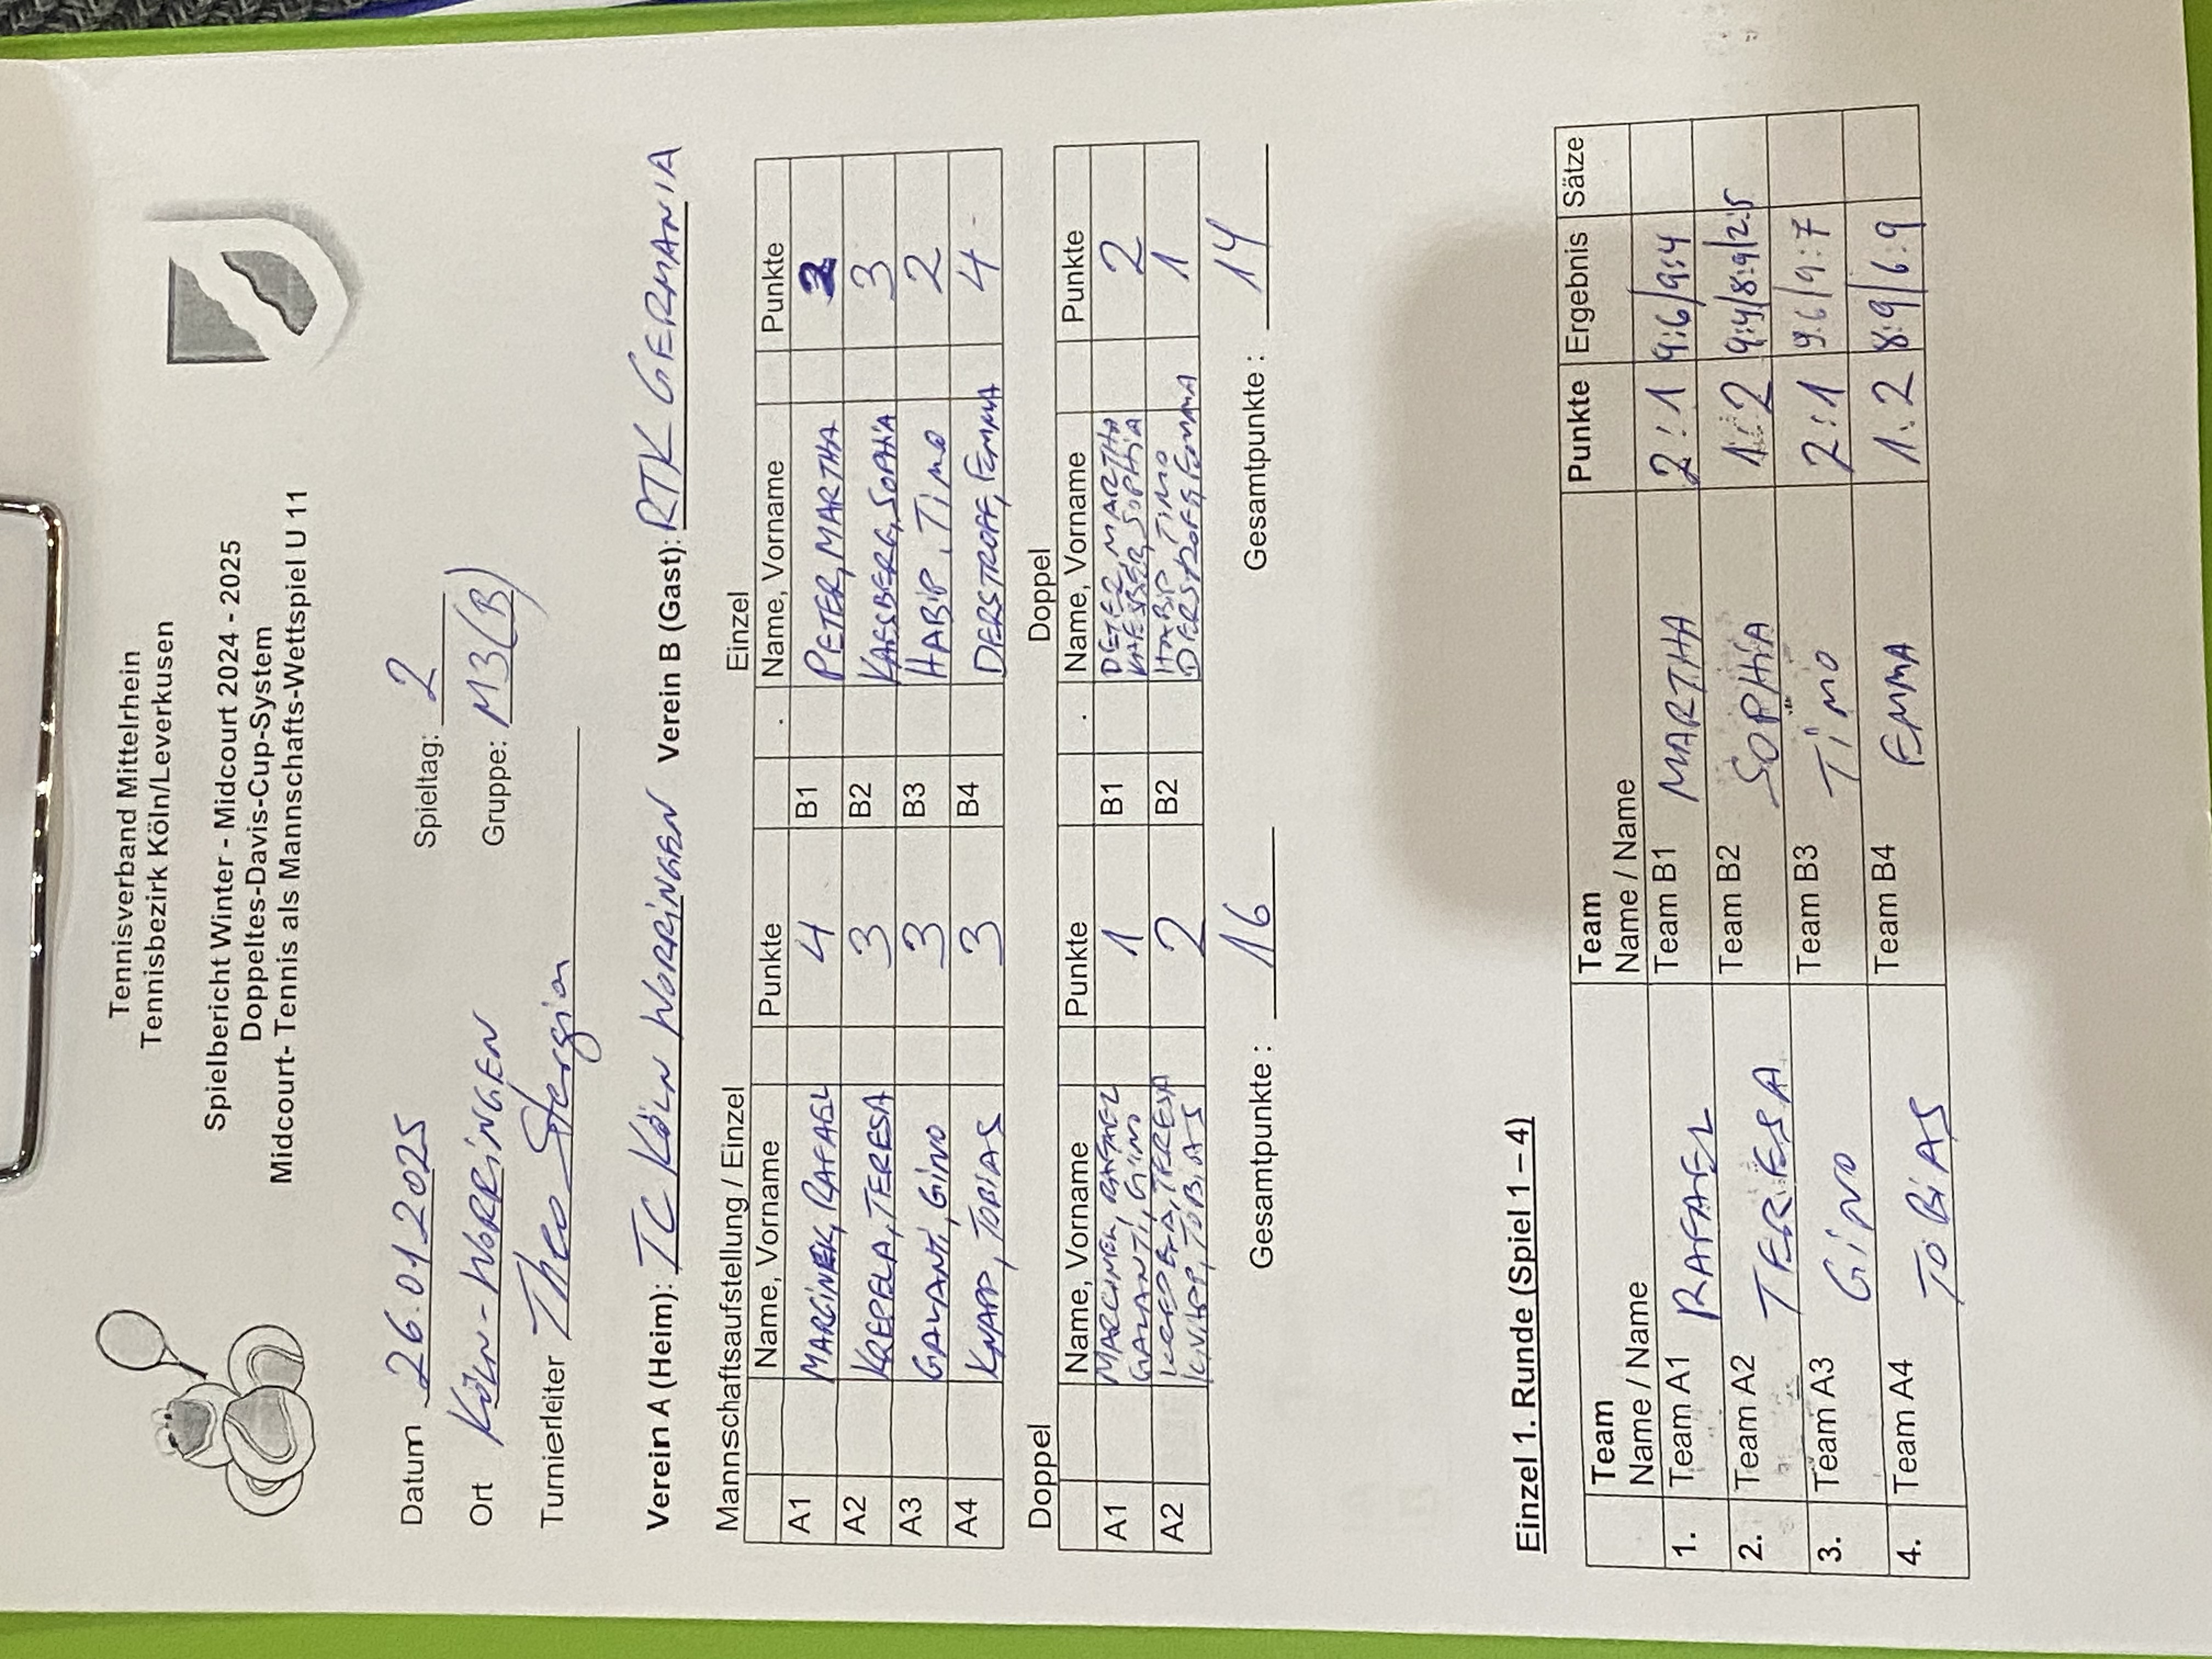 Tennisverband Mittelrhein
Tennisbezirk Köln/Leverkusen
Spielbericht Winter - Midcourt 2024 - 2025
Doppeltes-Davis-Cup-System
Midcourt- Tennis als Mannschafts-Wettspiel U 11
Datum 26.01.2025 Spieltag: 2
Ort KÖLN-WORRINGEN Gruppe: M3(B)
Turnierleiter Theo Stergiou
Verein A (Heim): TC KÖLN WORRINGEN Verein B (Gast): RTK GERMANIA
Mannschaftsaufstellung / Einzel Einzel
Name, Vorname Punkte . Name, Vorname Punkte
A1 MARCINEK, RAFAEL 4 B1 PETER, MARTHA 2
A2 KREPELA, TERESA 3 B2 KAESBERG, SOPHIA 3
A3 GALANTI, GINO 3 B3 HABIP, TIMO 2
A4 KNAPP, TOBIAS 3 B4 DERSTROFF, EMMA 4
Doppel Doppel
Name, Vorname Punkte . Name, Vorname Punkte
A1 MARCINEK, RAFAEL 1 B1 PETER, MARTHA 2
GALANTI, GINO KAESBER, SOPHIA
A2 KREPELA, TERESA 2 B2 HABIP, TIMO 1
KNAPP, TOBIAS DERSTROFF, EMMA
Gesamtpunkte : 16 Gesamtpunkte : 14
Einzel 1. Runde (Spiel 1 – 4)
Team Team Punkte Ergebnis Sätze
Name / Name Name / Name
1. Team A1 RAFAEL Team B1 MARTHA 2:1 9:6/9:4
2. Team A2 TERESA Team B2 SOPHIA 1:2 9:4/8:9/2:5
3. Team A3 GINO Team B3 TIMO 2:1 9:6/9:7
4. Team A4 TOBIAS Team B4 EMMA 1:2 8:9/6:9